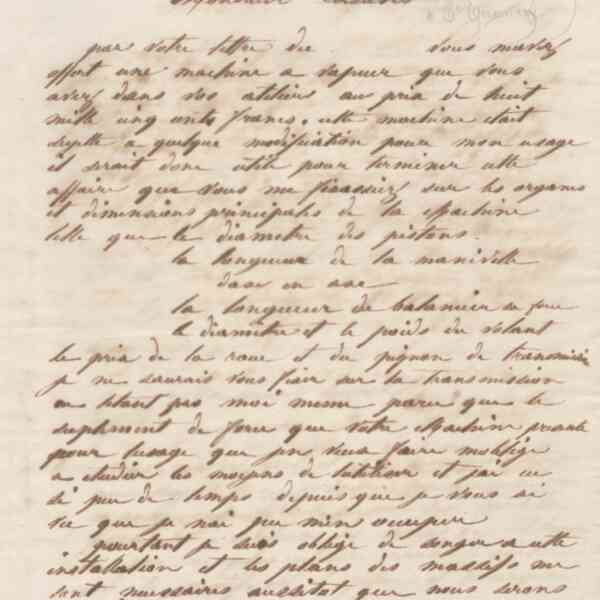 Monsieur
par votre lettre du vous mavez
offert une machine a vapeur que vous
avez dans vos ateliers au prix de huit
mille cinq cents francs. cette machine etait
sujette a quelque modification pour mon usage
il serait donc utile pour terminer cette
affaire que vous me fixassiez sur les organes
et dimensions principales de la machine
telle que le diametre des pistons.
la longueur de la manivelle
daxe en axe
la longueur de balancier
le diametre et le poids du volant
le prix de la roue et du pignon de transmission
je ne saurais vous fixer sur la transmission
ne letant pas moi meme parce que le
suplement de force que votre machine presente
pour lusage que jen veux faire moblige
a etudier les moyens de lutiliser et jai eu
si peu de temps depuis que je vous ai
vue que je nai pu men occuper
pourtant je suis oblige de songer a cette
installation et les plans des massifs me
sont necessaires aussitot que nous serons